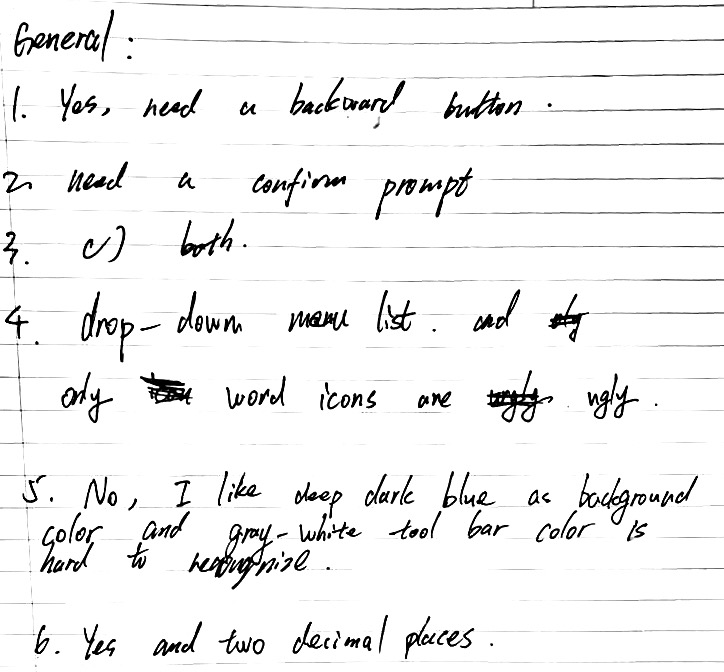 General:
1. Yes, need a backward button.
2. need a confirm prompt
3. c) both.
4. drop-down menu list. and
only word icons are ugly.
5. No, I like deep dark blue as background
color and gray-white tool bar color is
hard to recognize.
6. Yes and two decimal places.